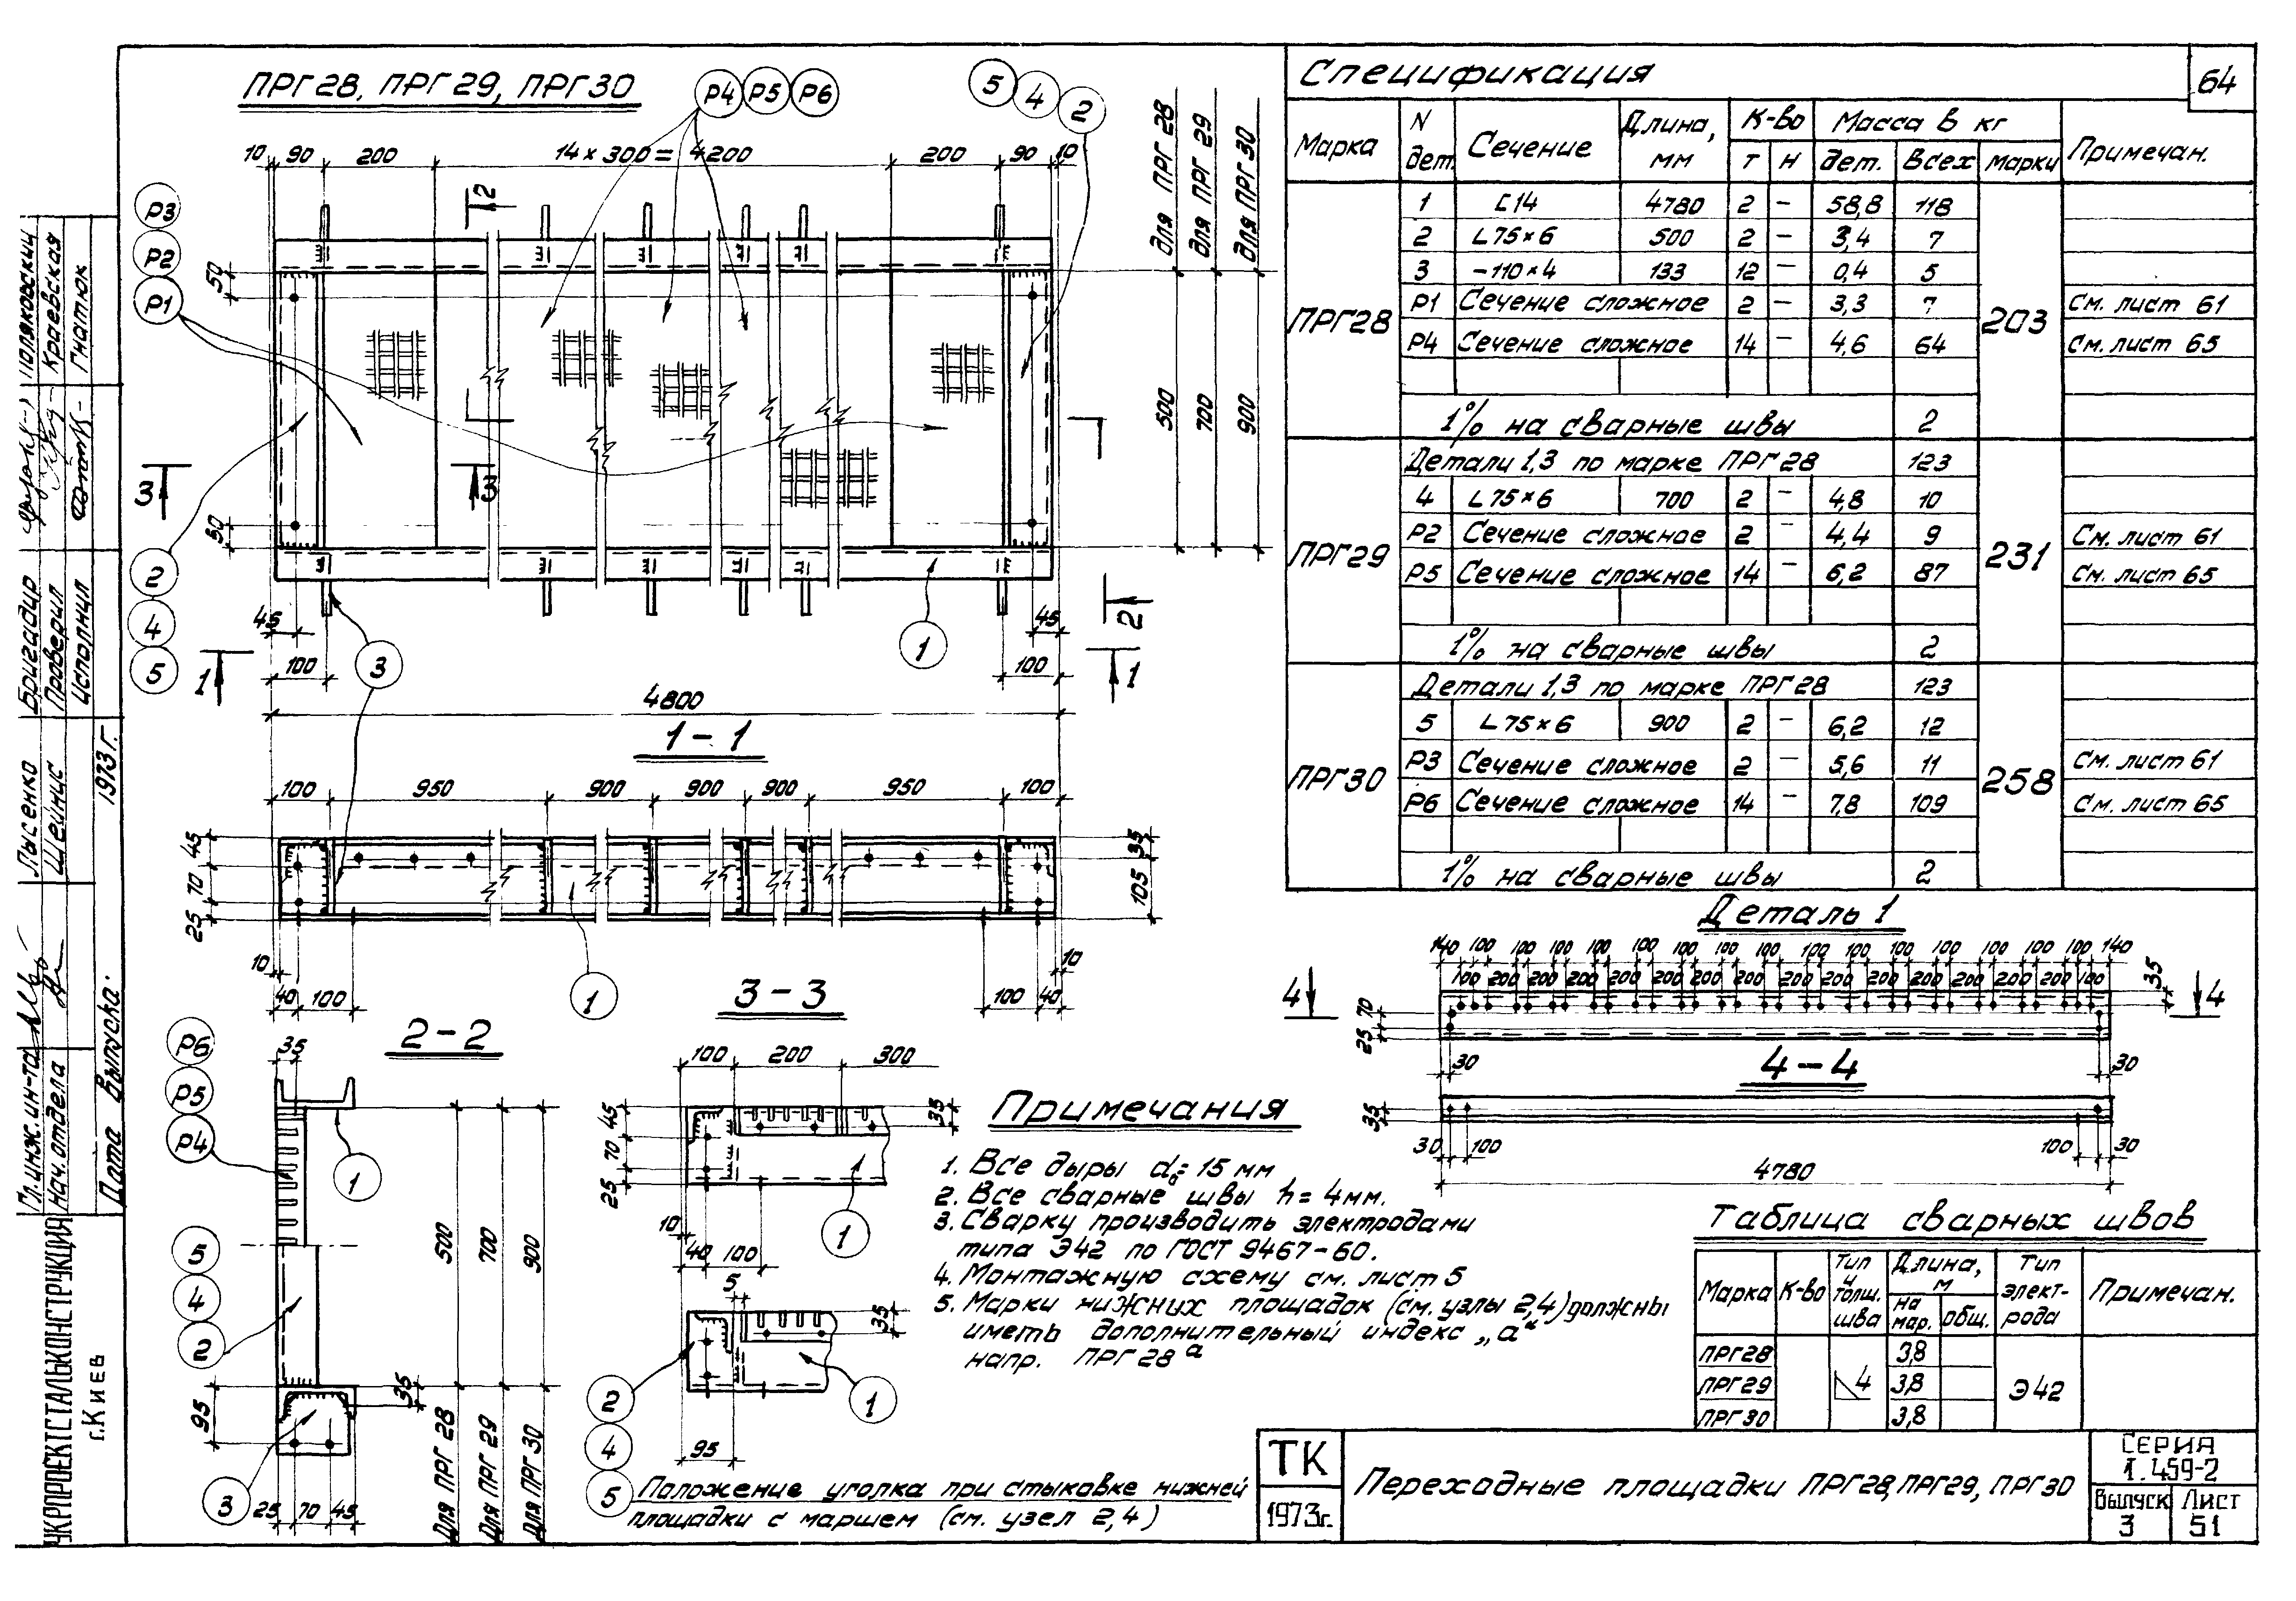 ПРГ28, ПРГ29, ПРГ30
Р4 Р5 Р6
5 4 2
10 90 200 14×300=4200 200 90 10
Р3
Р2
Р1
50
50
2
2
3
3
2
4
5
45
100
3
1
45
100
1
1
4800
для ПРГ 28
для ПРГ 29
для ПРГ 30
500
700
900
1-1
100 950 900 900 900 950 100
45
70
25
35
105
10
40 100
1
100 40
10
2-2
Р6
Р5
Р4
35
1
5
4
2
95
35
3
25 70 45
500
700
900
Для ПРГ 28
Для ПРГ 29
Для ПРГ 30
3-3
100 200 300
45
70
25
35
10
40 100
1
5
35
2
4
5
1
95
Положение уголка при стыковке нижней
площадки с маршем (см. узел 2,4)
Примечания
1. Все дыры d₀= 15 мм
2. Все сварные швы h = 4мм.
3. Сварку производить электродами
типа Э42 по ГОСТ 9467-60.
4. Монтажную схему см. лист 5
5. Марки нижних площадок (см. узлы 2,4) должны
иметь дополнительный индекс „а“
напр. ПРГ28ᵃ
Спецификация
64
Марка N дет. Сечение Длина, мм К-во Масса в кг Примечан.
т н дет. Всех марки
ПРГ28
1 [14 4780 2 - 58,8 118
2 ∟75×6 500 2 - 3,4 7
3 -110×4 133 12 - 0,4 5
Р1 Сечение сложное 2 - 3,3 7 См. лист 61
Р4 Сечение сложное 14 - 4,6 64 203 См. лист 65
1% на сварные швы 2
ПРГ29
Детали 1,3 по марке ПРГ28 123
4 ∟75×6 700 2 - 4,8 10
Р2 Сечение сложное 2 - 4,4 9 231 См. лист 61
Р5 Сечение сложное 14 - 6,2 87 См. лист 65
1% на сварные швы 2
ПРГ30
Детали 1,3 по марке ПРГ28 123
5 ∟75×6 900 2 - 6,2 12
Р3 Сечение сложное 2 - 5,6 11 258 См. лист 61
Р6 Сечение сложное 14 - 7,8 109 См. лист 65
1% на сварные швы 2
Деталь 1
140 100 100 100 100 100 100 100 100 100 100 100 100 100 100 100 140
100 200 200 200 200 200 200 200 200 200 200 200 200 200 200 100
35
4
4
70
25
30
30
4-4
35
30 100
100 30
4780
Таблица сварных швов
Марка К-во Тип и толщ. шва Длина, м Тип элект-рода Примечан.
на мар. общ.
ПРГ28 3,8
ПРГ29 4 3,8 Э42
ПРГ30 3,8
ТК
1973г.
Переходные площадки ПРГ28, ПРГ29, ПРГ30
СЕРИЯ
1.459-2
Выпуск Лист
3 51
Гл. инж. ин-та
Нач. отдела
Дата выпуска:
Лысенко
Шейнис
1973 г.
Бригадир
Проверил
Исполнил
Поляковский
Краевская
Гнатюк
УКРПРОЕКТСТАЛЬКОНСТРУКЦИЯ
г. Киев